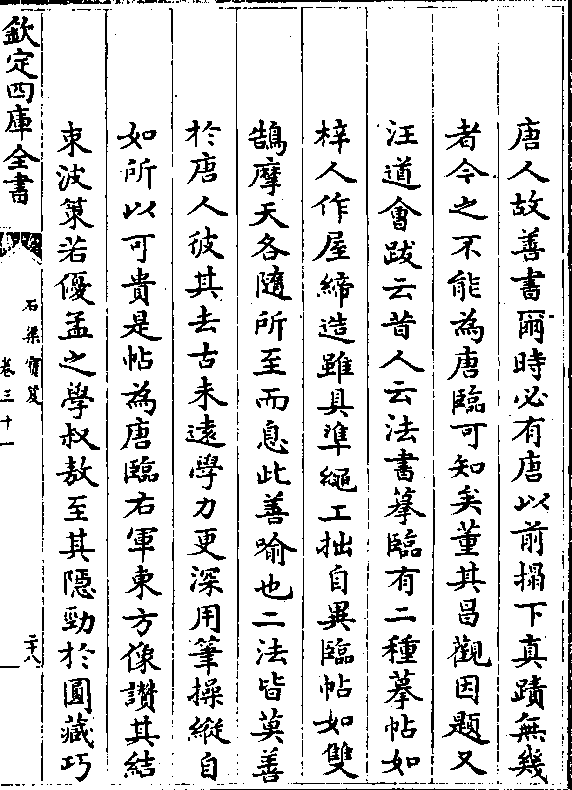 唐人故善書爾時必有唐以前搨下真蹟無幾
者今之不能為唐臨可知矣董其昌觀因題又
汪道會跋云昔人云法書摹臨有二種摹帖如
梓人作屋締造雖具準繩工拙自異臨帖如雙
鵠摩天各隨所至而息此善喻也二法皆莫善
於唐人彼其去古未遠學力更深用筆操縱自
如所以可貴是帖為唐臨右軍東方像讚其結
束波策若優孟之學叔敖至其隱勁於圓藏巧
欽定四庫全書
石渠寳笈
卷三十一
二十八